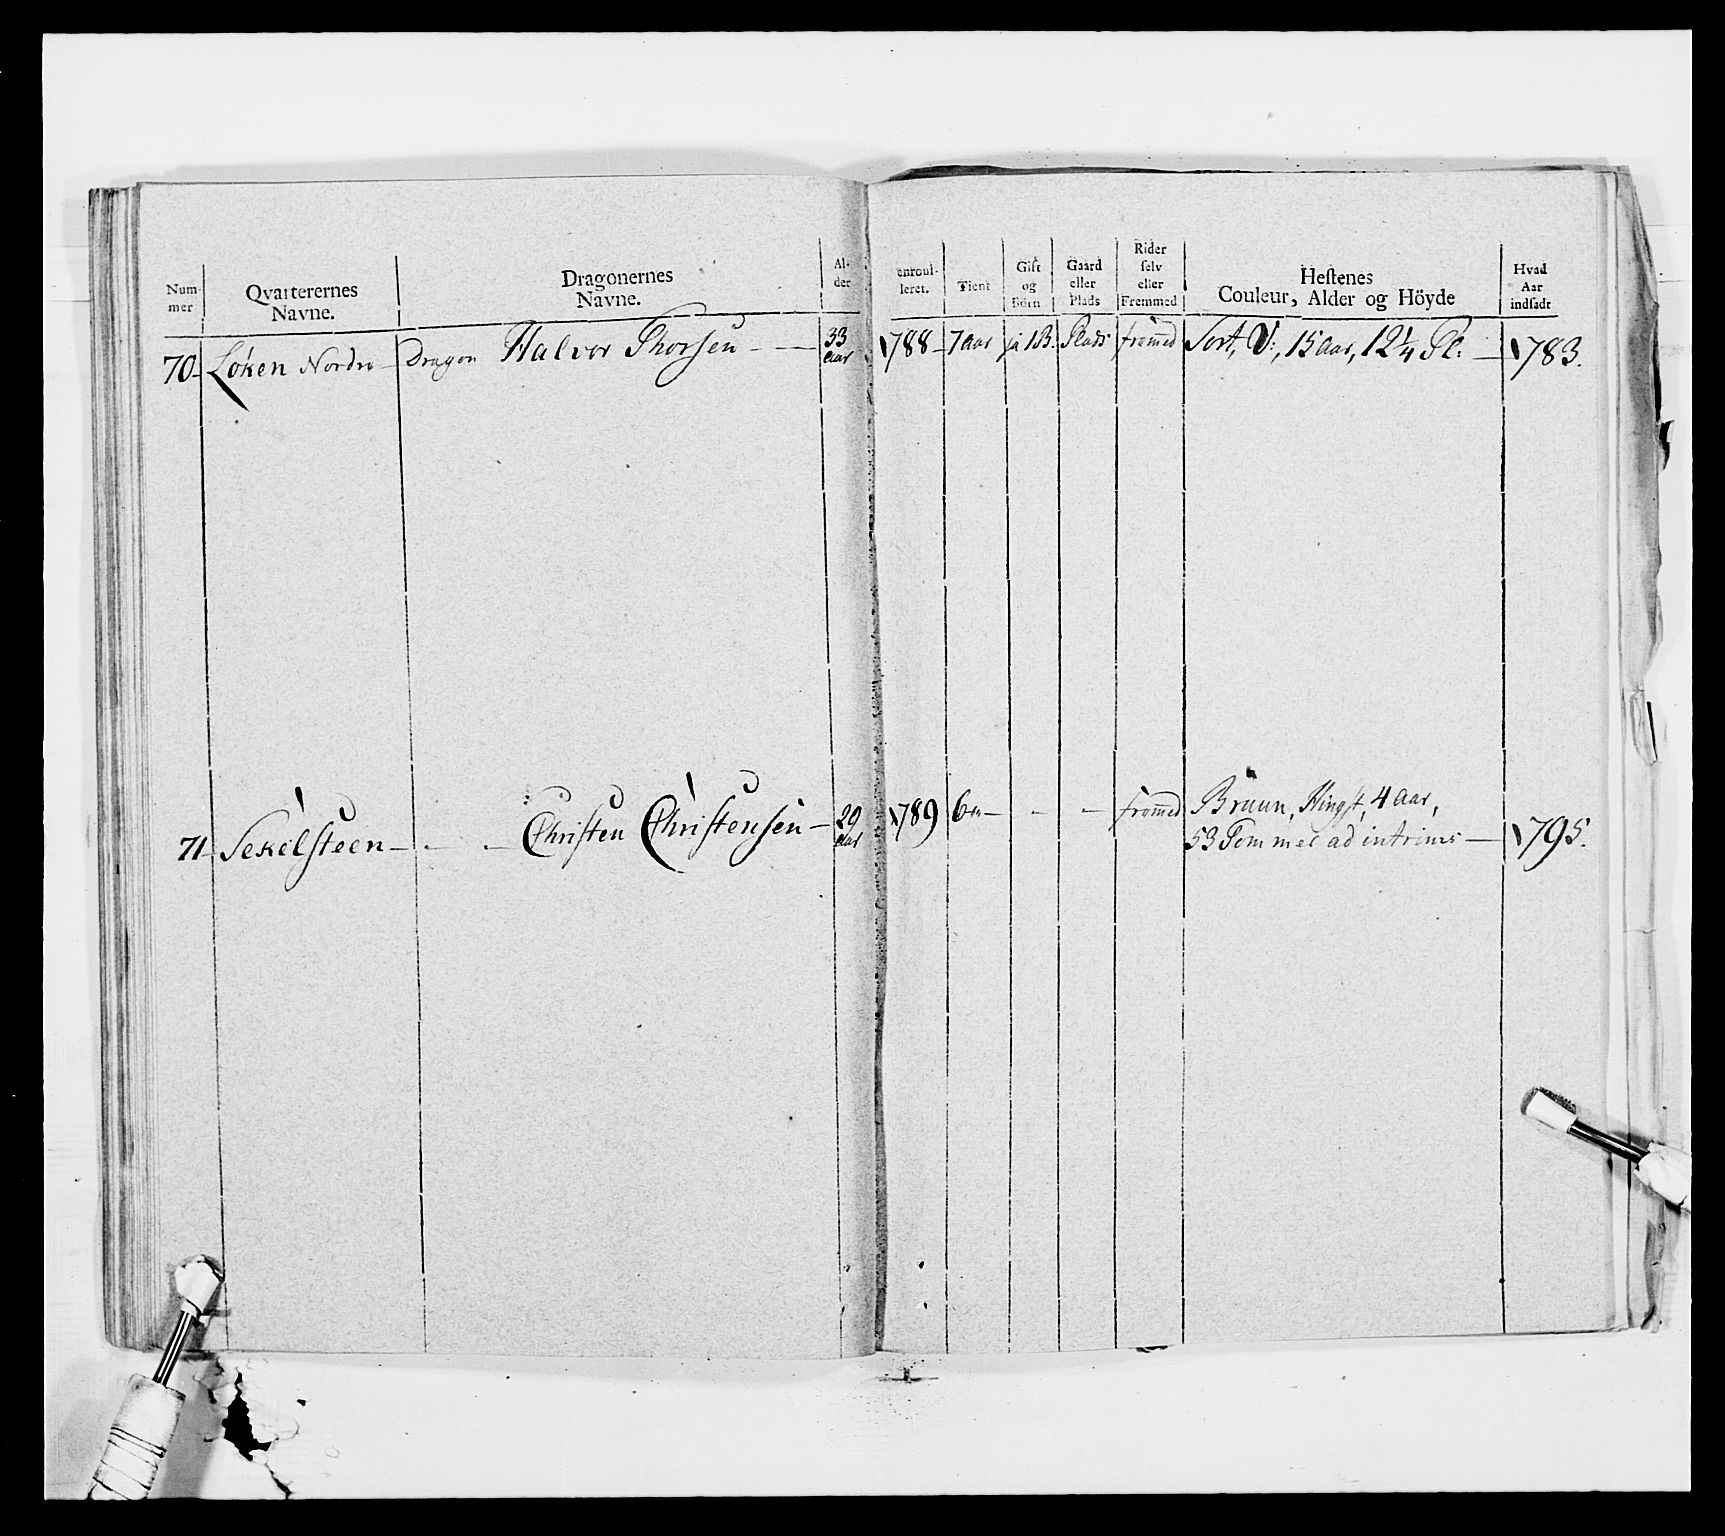 Num-
mer
Qvarterernes
Navne.
Dragonernes
Navne.
Al-
der
enroul-
leret.
Tient
Gift
og
Börn
Gaard
eller
Plads
Rider
selv
eller
Fremmed
Hestenes
Couleur, Alder og Höyde
Hvad
Aar
indsadt
70 Løken Nordre Dragon Halvor Thorsen 33 Aar 1788 7 aar ja 1B. Plads fremed Sort, V:, 15 aar, 12 1/4 Pl: 1783.
71 Sekelsteen Christen Christensen 29 Aar 1789 6 fremed Bruun, Hingst, 4 aar,
53 Tommel ad intrims 1795.